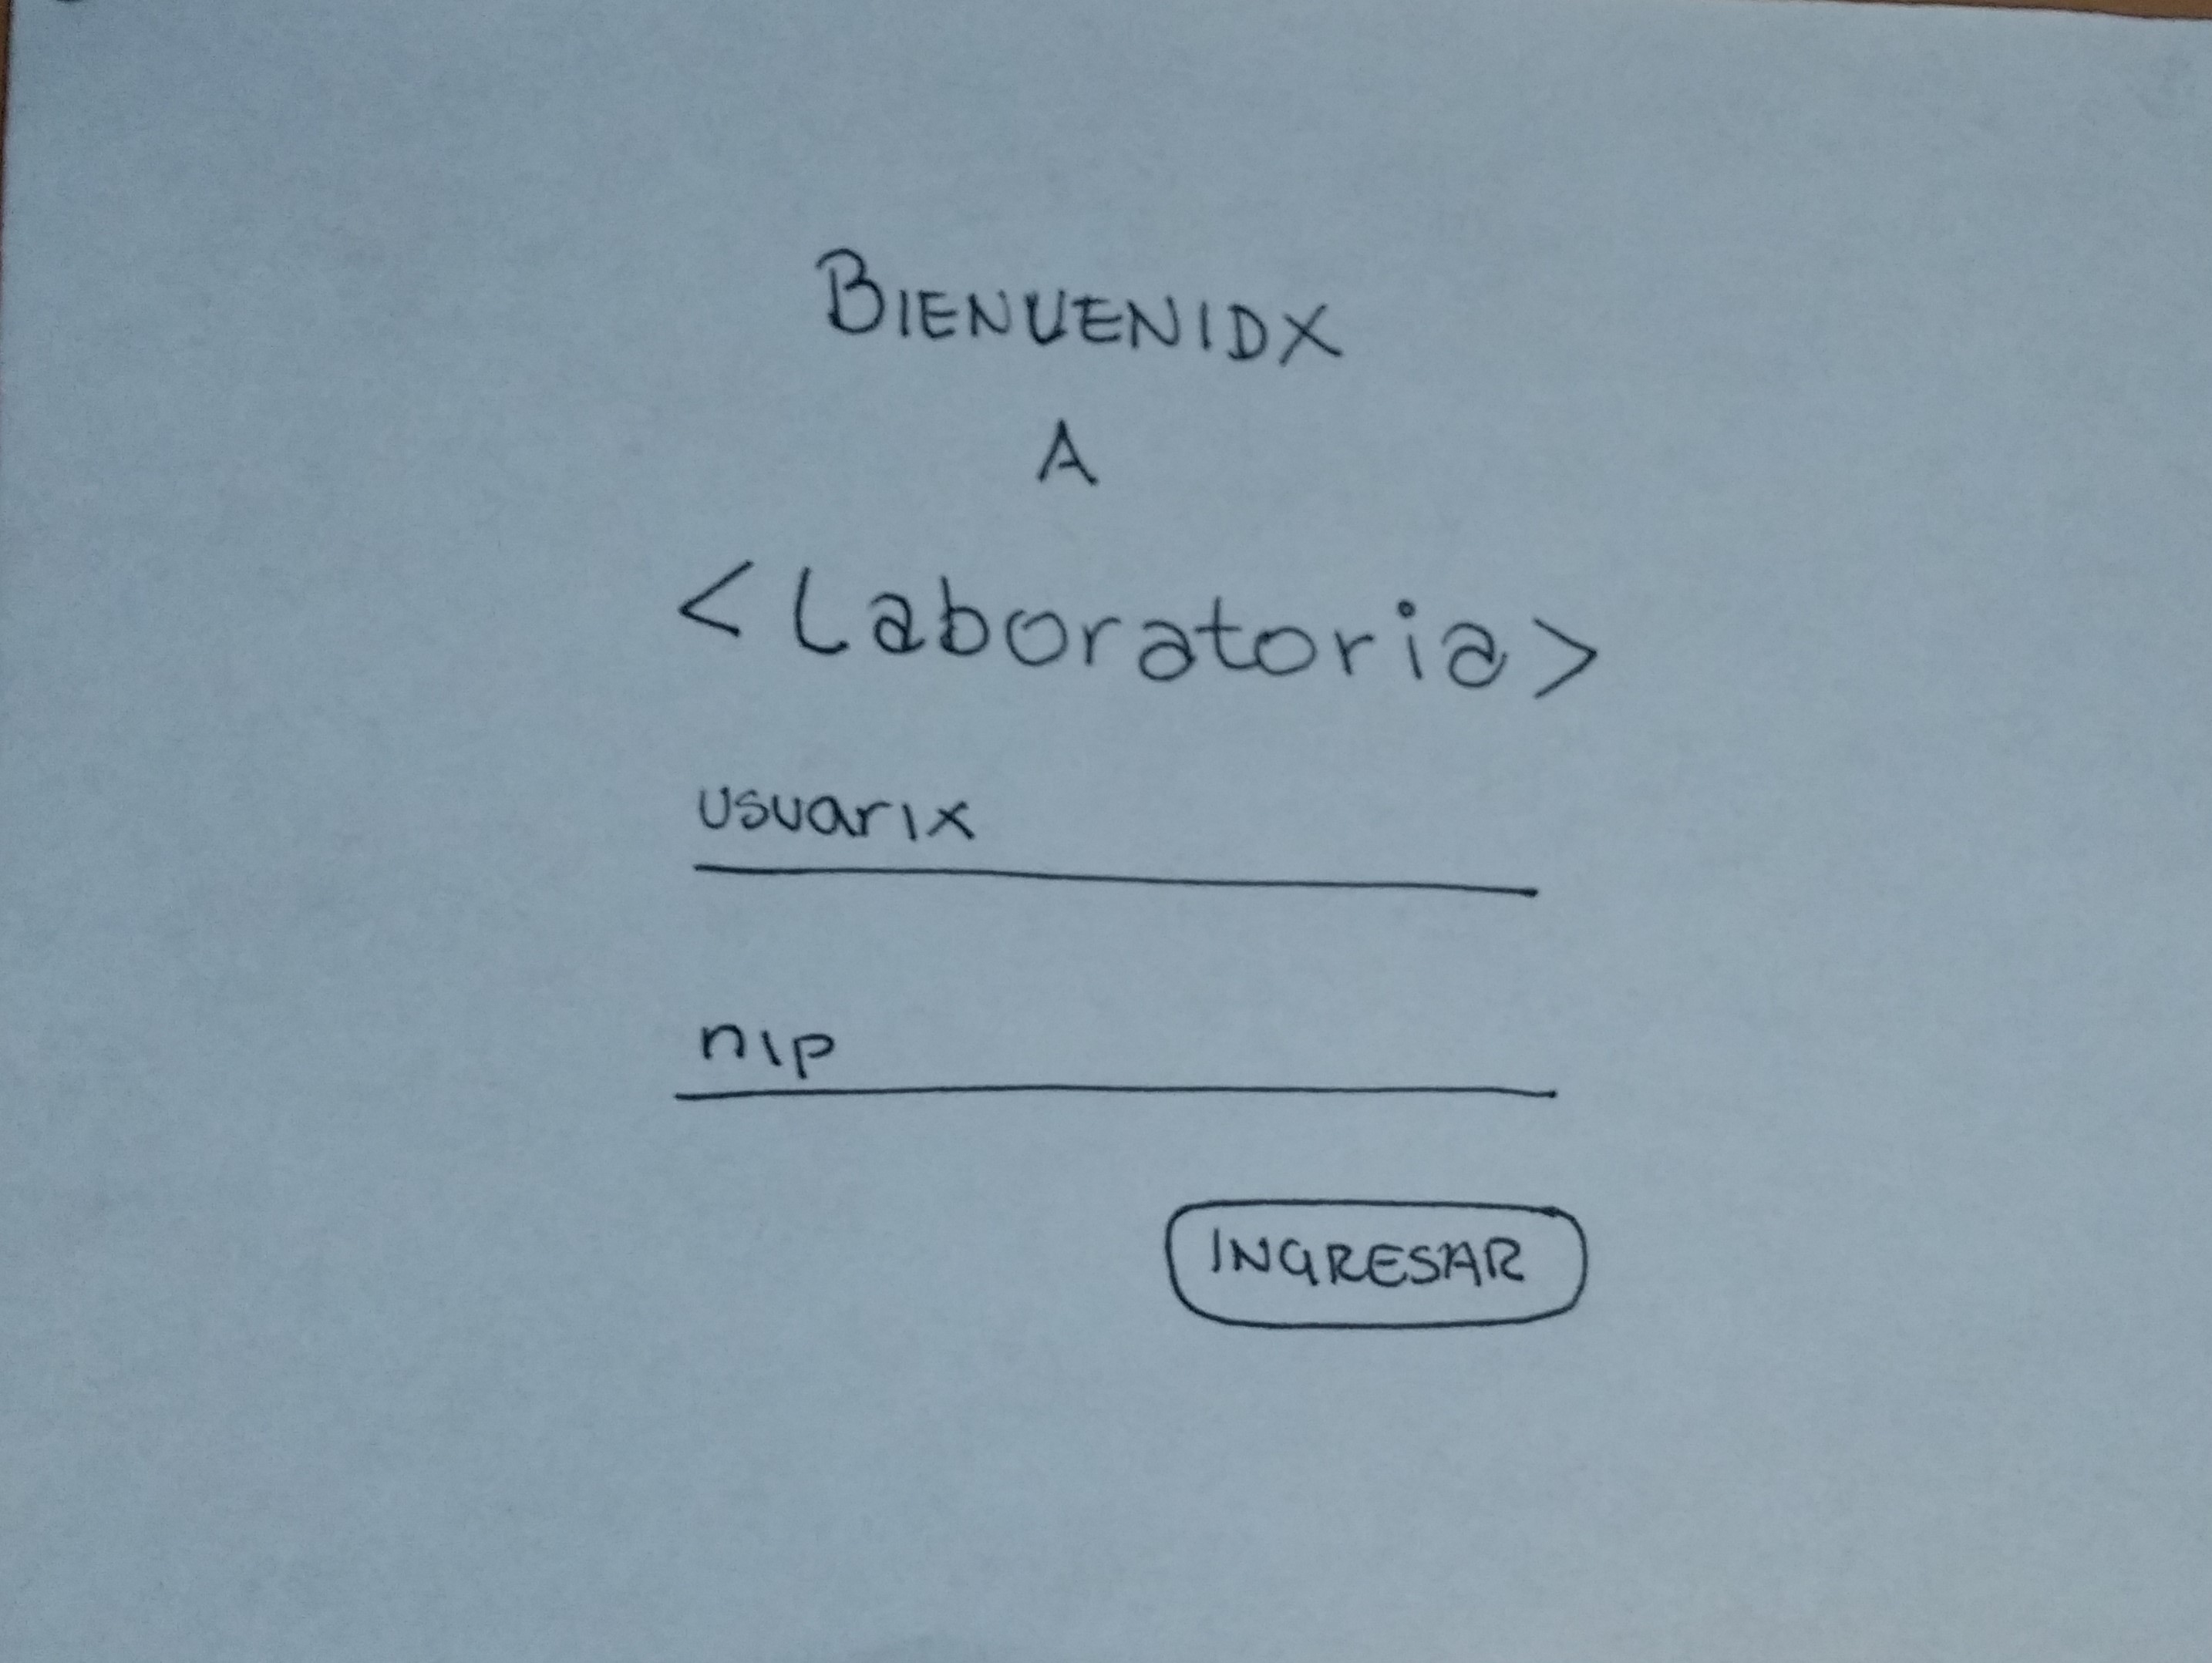 BIENVENIDX
A
<Laboratoria>
usuarix
nip
INGRESAR